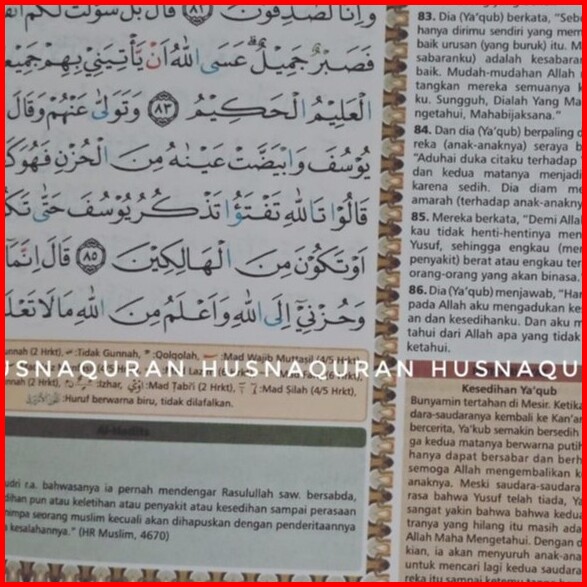 وَاِنَّا لَصٰدِقُوْنَ ٨٢ قَالَ بَلْ سَوَّلَتْ لَكُمْ
فَصَبْرٌ جَمِيْلٌ ۗ عَسَى اللّٰهُ اَنْ يَّأْتِيَنِيْ بِهِمْ جَمِيْعًا
الْعَلِيْمُ الْحَكِيْمُ ٨٣ وَتَوَلّٰى عَنْهُمْ وَقَالَ
يُوْسُفَ وَابْيَضَّتْ عَيْنٰهُ مِنَ الْحُزْنِ فَهُوَ
قَالُوْا تَاللّٰهِ تَفْتَؤُا تَذْكُرُ يُوْسُفَ حَتّٰى
اَوْ تَكُوْنَ مِنَ الْهَالِكِيْنَ ٨٥ قَالَ اِنَّمَآ
وَحُزْنِيْٓ اِلَى اللّٰهِ وَاَعْلَمُ مِنَ اللّٰهِ مَا لَا
83. Dia (Ya'qub) berkata, "Seb
hanya dirimu sendiri yang mem
baik urusan (yang buruk) itu. M
sabaranku) adalah kesabaran
baik. Mudah-mudahan Allah
tangkan mereka semuanya k
ku. Sungguh, Dialah Yang Ma
ngetahui, Mahabijaksana."
84. Dan dia (Ya'qub) berpaling d
reka (anak-anaknya) seraya b
"Aduhai duka citaku terhadap
dan kedua matanya menjadi
karena sedih. Dia diam m
amarah (terhadap anak-anakny
85. Mereka berkata, "Demi Allah
kau tidak henti-hentinya men
Yusuf, sehingga engkau (men
penyakit) berat atau engkau ter
orang-orang yang akan binasa.
86. Dia (Ya'qub) menjawab, "Har
pada Allah aku mengadukan ke
an dan kesedihanku. Dan aku m
tahui dari Allah apa yang tidak
ketahui.
unnah (2 Hrkt), :Tidak Gunnah, :Qolqolah, :Mad Wajib Muttaşil (4/5 Hrkt)
USNAQURAN HUSNAQURAN HUSNAQU
nnah (2 Hrkt), :Izhar, :Mad Ṭabi'i (2 Hrkt), :Mad Ṣilah (4/5 Hrkt),
:Huruf berwarna biru, tidak dilafalkan.
udri r.a. bahwasanya ia pernah mendengar Rasulullah saw. bersabda,
dihan pun atau keletihan atau penyakit atau kesedihan sampai perasaan
himpa seorang muslim kecuali akan dihapuskan dengan penderitaannya
kesalahannya." (HR Muslim, 4670)
Kesedihan Ya'qub
Bunyamin tertahan di Mesir. Ketika
dara-saudaranya kembali ke Kan'a
bercerita, Ya'kub semakin bersedih
ga kedua matanya berwarna putih
hanya dapat bersabar dan berh
semoga Allah mengembalikan k
anaknya. Meski saudara-saudara
rasa bahwa Yusuf telah tiada, Ya
sangat yakin bahwa bahwa kedua
tranya yang hilang itu masih ada
Allah Maha Mengetahui. Dengan d
kian, ia akan menyuruh anak-ana
untuk mencari lagi kedua saudara